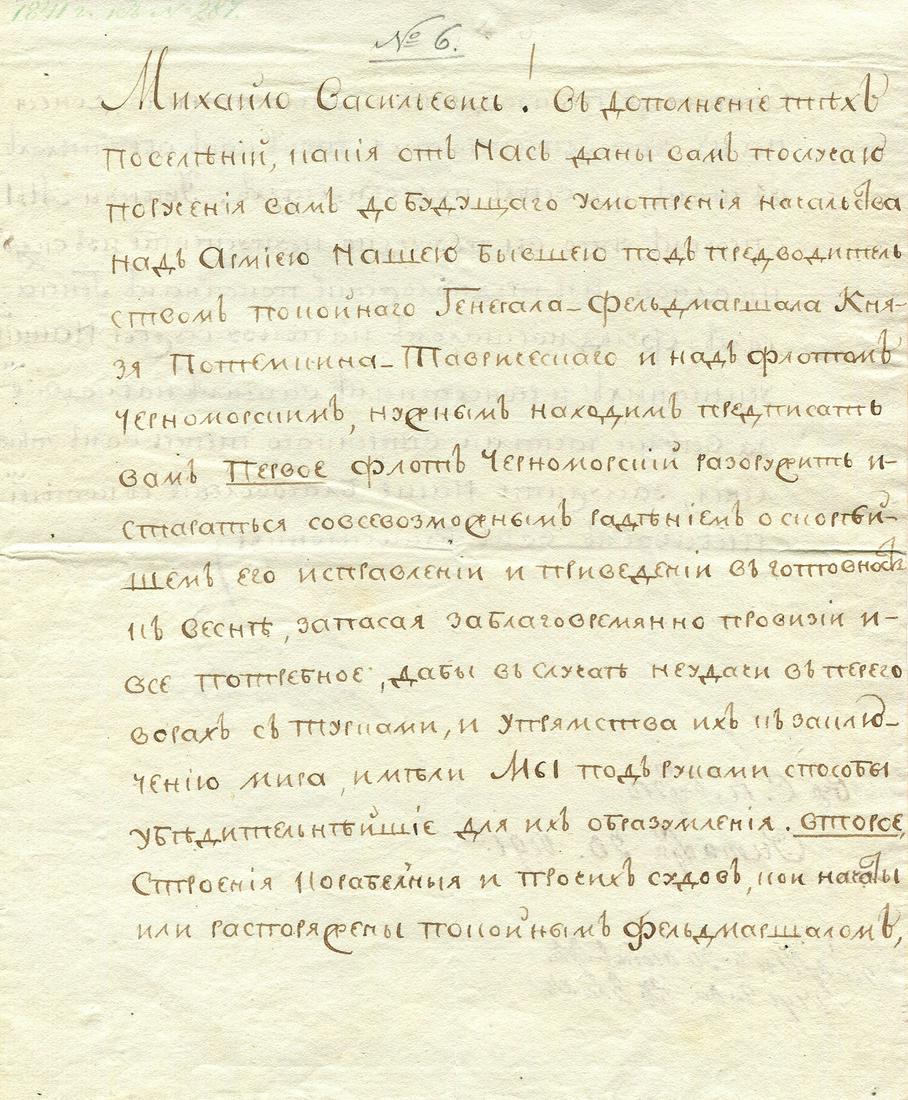 1841 г. къ № 287.
№ 6.
Михайло Васильевичь. Въ дополненіе тѣхъ
повелѣній, какія отъ Насъ даны вамъ послучаю
порученія вамъ добудущаго усмотренія начальства
надъ Арміею Нашею бывшею подъ предводитель
ствомъ покойнаго Генерала-Фельдмаршала Кня-
зя Потемкина-Таврическаго и надъ флотомъ
черноморскимъ, нужнымъ находимъ предписать
вамъ Первое флотъ Черноморскій разоружить и-
стараться совсевозможнымъ радѣніемъ о скорѣй-
шемъ его исправленіи и приведеніи въ готовность
къ веснѣ, запасая заблаговремянно провизіи и-
все потребное, дабы въ случаѣ неудачи въ перего
ворахъ съ турками, и упрямства ихъ къ заклю-
ченію мира, имѣли Мы подъ руками способы
убѣдительнѣйшіе для ихъ образумленія. второе,
Строенія корабельныя и прочихъ судовъ, кои начаты
или распоряжены покойнымъ фельдмаршаломъ,